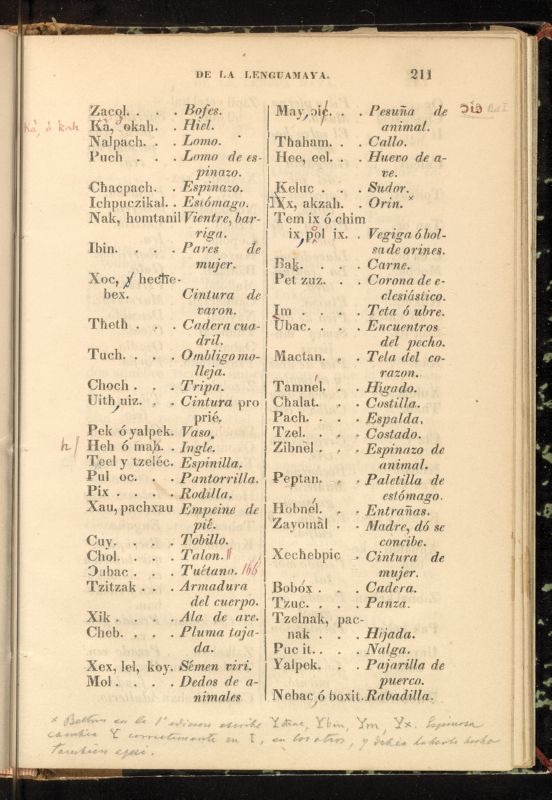 DE LA LENGUAMAYA. 211
Zacol. . . . Bofes.
Ka, okah. . Hiel.
Nalpach. . . Lomo.
Puch . . . Lomo de es-
pinazo.
Chacpach. . Espinazo.
Ichpuczikal. . Estómago.
Nak, homtanil Vientre, bar-
riga.
Ibin. . . . Pares de
mujer.
Xoc, y heche-
bex. Cintura de
varon.
Theth . . . Cadera cua-
dril.
Tuch. . . . Ombligo mo-
lleja.
Choch . . . Tripa.
Uith, uiz. . . Cintura pro
prié.
Pek ó yalpek. Vaso.
h/ Heh ó mah. . Ingle.
Teel y tzeléc. Espinilla.
Pul oc. . . Pantorrilla.
Pix . . . . Rodilla.
Xau, pachxau Empeine de
pié.
Cuy. . . . Tobillo.
Chol. . . . Talon.
Ɔubac . . . Tuétano. 166
Tzitzak . . . Armadura
del cuerpo.
Xik . . . . Ala de ave.
Cheb. . . . Pluma taja-
da.
Xex, lel, koy. Sémen viri.
Mol. . . . . Dedos de a-
nimales
May, ɔic. . . Pesuña de ɔic
animal.
Thaham. . . Callo.
Hee, eel. . . Huevo de a-
ve.
Keluc . . . Sudor.
Yx, akzah. . Orin. ×
Tem ix ó chim
ix, pol ix. . Vegiga ó bol-
sa de orines.
Bak. . . . Carne.
Pet zuz. . . Corona de e-
clesiástico.
Im . . . . Teta ó ubre.
Ubac. . . . Encuentros
del pecho.
Mactan. . . Tela del co-
razon.
Tamnél. . . Higado.
Chalat. . . Costilla.
Pach. . . . Espalda.
Tzel. . . . Costado.
Zibnèl . . . Espinazo de
animal.
Peptan. . . Paletilla de
estómago.
Hobnél. . . Entrañas.
Zayomàl . . Madre, dó se
concibe.
Xechebpic . Cintura de
mujer.
Bobóx . . . Cadera.
Tzuc. . . . Panza.
Tzelnak, pac-
nak . . . Hijada.
Puc it. . . . Nalga.
Yalpek. . . Pajarilla de
puerco.
Nebac, ó boxit. Rabadilla.
× Beltran en la 1ª edicion escribe Ybin, Ym, Yx. Espinosa
cambia Y correctamente en I, en los otros, y debia haberlo hecho
tambien aqui.